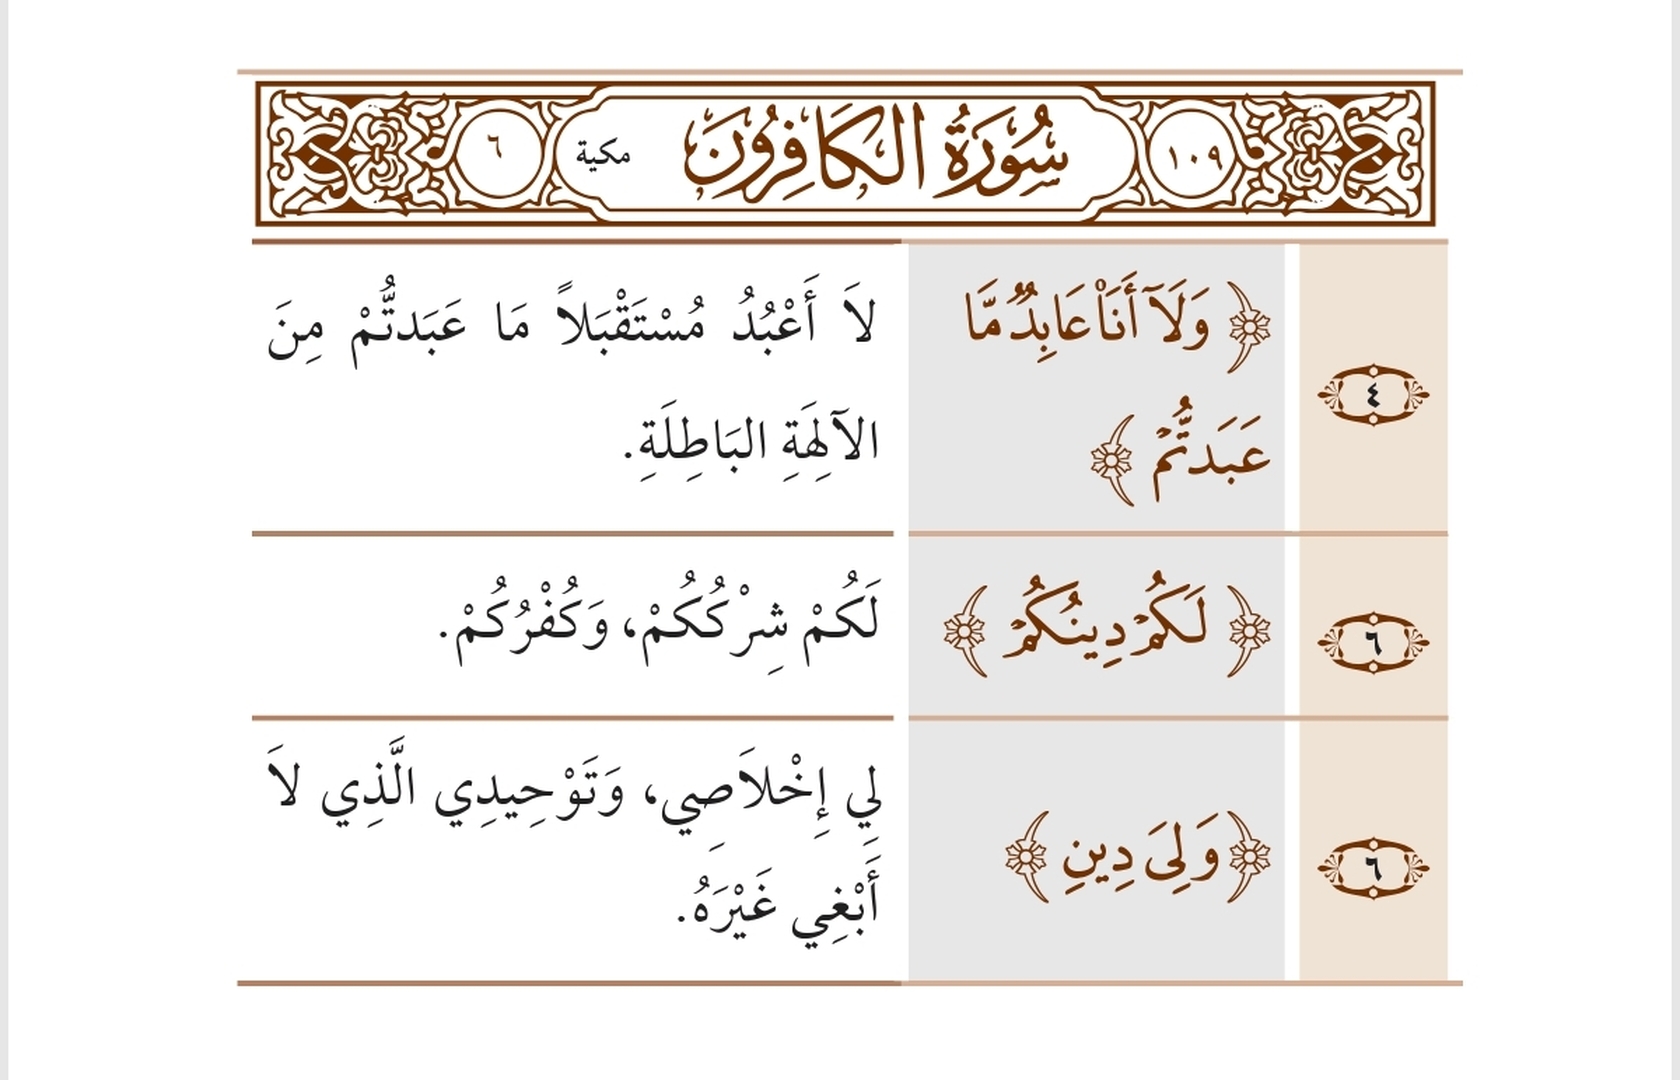 ١٠٩ سُورَةُ الكَافِرُونَ مكية ٦
٤ ﴿ وَلَآ أَنَا۠ عَابِدٌ مَّا لاَ أَعْبُدُ مُسْتَقْبَلاً مَا عَبَدتُّمْ مِنَ
عَبَدتُّمْ ﴾ الآلِهَةِ البَاطِلَةِ.
٦ ﴿ لَكُمْ دِينُكُمْ ﴾ لَكُمْ شِرْكُكُمْ، وَكُفْرُكُمْ.
٦ ﴿ وَلِىَ دِينِ ﴾ لِي إِخْلاَصِي، وَتَوْحِيدِي الَّذِي لاَ
أَبْغِي غَيْرَهُ.